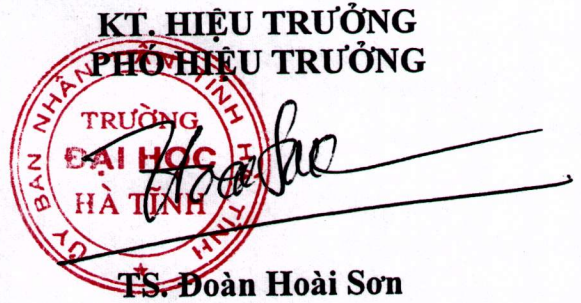 KT. HIỆU TRƯỞNG
PHÓ HIỆU TRƯỞNG
ỦY BAN NHÂN DÂN TỈNH HÀ TĨNH
TRƯỜNG
ĐẠI HỌC
HÀ TĨNH
TS. Đoàn Hoài Sơn